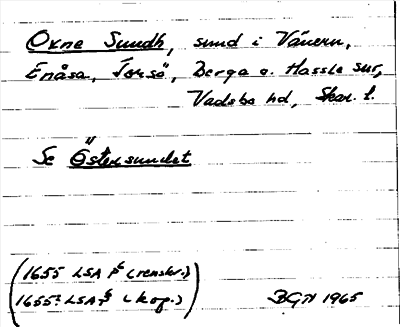 Oxne Sundh, sund i Vänern,
Enåsa, Torsö, Berga o. Hassle snr,
Vadsbo hd, Skar. l.
Se Östersundet
(1655 LSA P6 (renskr.))
(1655: LSA P6 (kop.))
BGN 1965